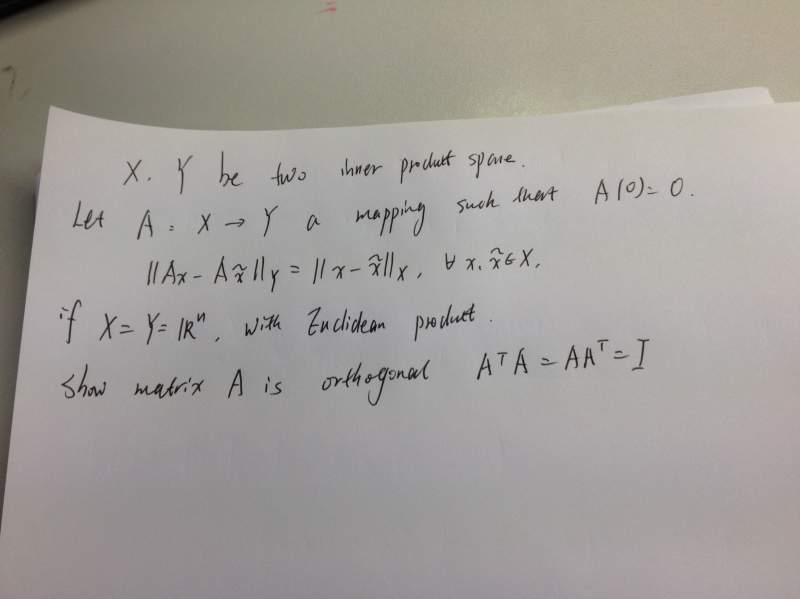 X. Y be two inner product space.
Let A: X → Y a mapping such that A(0)=0.
||Ax - Ax̃||_Y = ||x - x̃||_X, ∀ x, x̃ ∈ X.
if X = Y = ℝⁿ, with Euclidean product.
Show matrix A is orthogonal AᵀA = AAᵀ = I